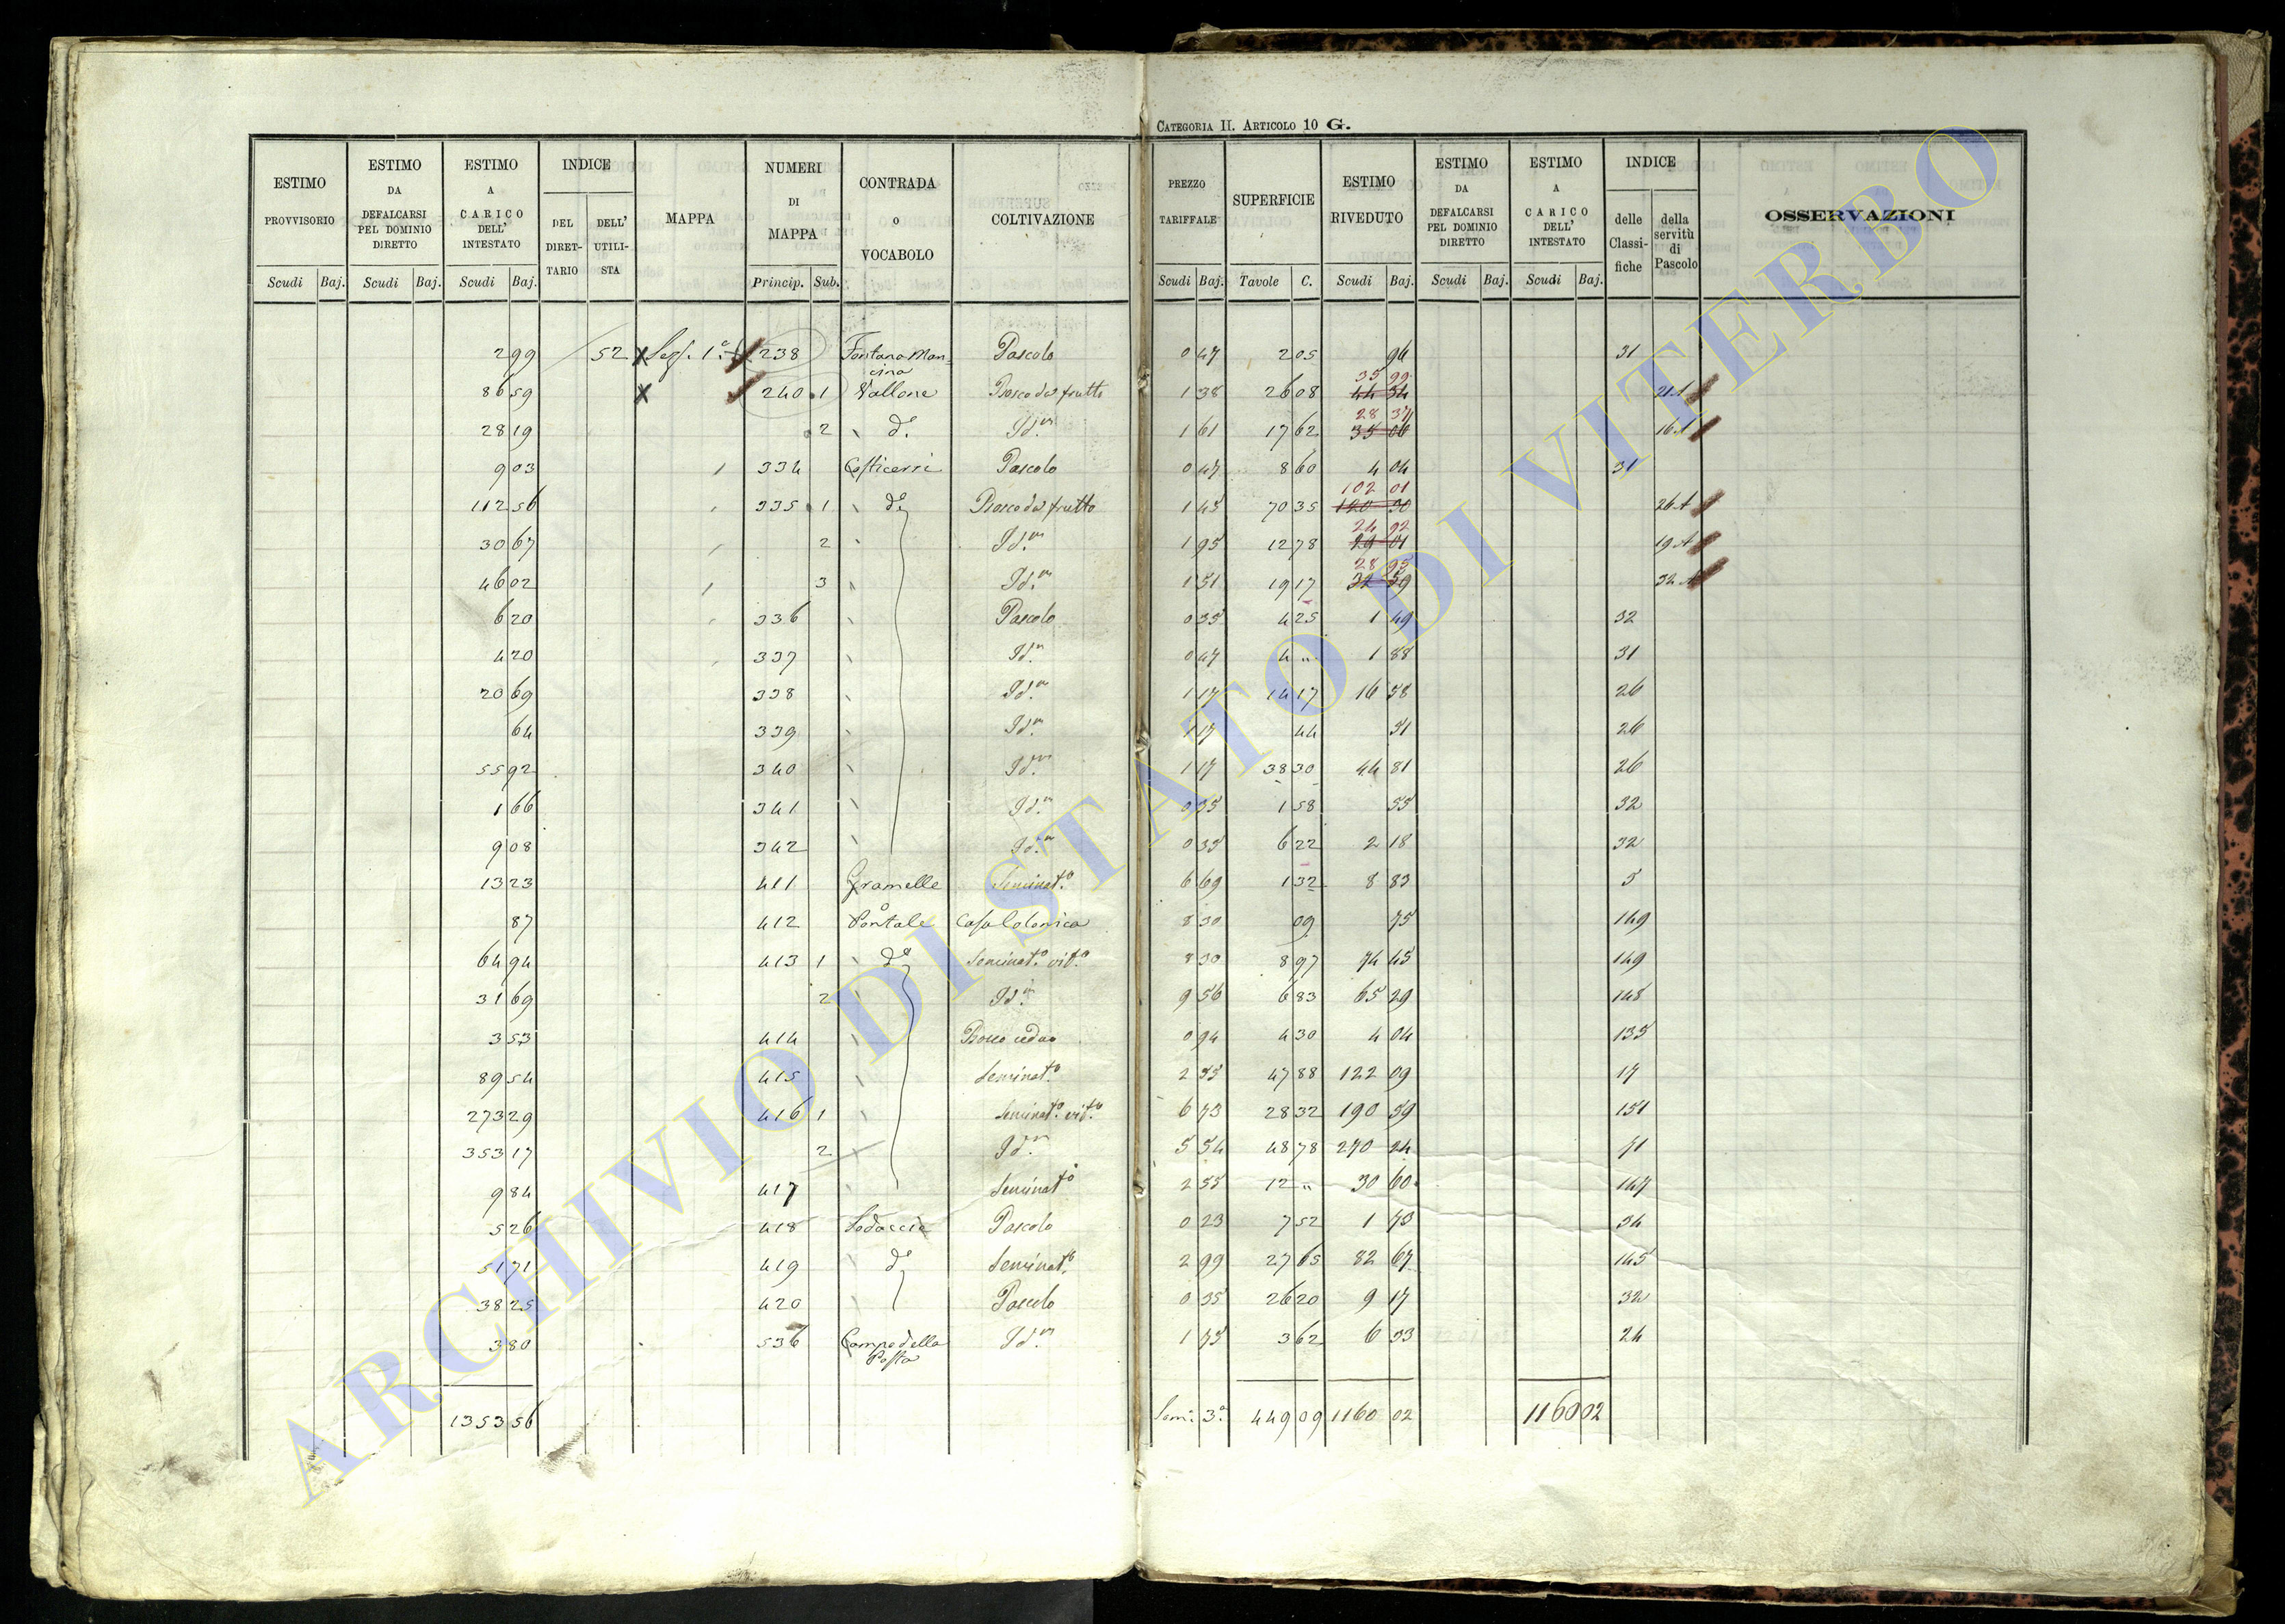 CATEGORIA II. ARTICOLO 10 G.
ESTIMO PROVVISORIO | ESTIMO DA DEFALCARSI PEL DOMINIO DIRETTO | ESTIMO A CARICO DELL' INTESTATO | INDICE | MAPPA | NUMERI DI MAPPA | CONTRADA O VOCABOLO | COLTIVAZIONE | PREZZO TARIFFALE | SUPERFICIE | ESTIMO RIVEDUTO | ESTIMO DA DEFALCARSI PEL DOMINIO DIRETTO | ESTIMO A CARICO DELL' INTESTATO | INDICE | OSSERVAZIONI
DEL DIRETTARIO | DELL' UTILISTA | delle Classifiche | della servitù di Pascolo
Scudi | Baj. | Scudi | Baj. | Scudi | Baj. | Princip. | Sub. | Scudi | Baj. | Tavole | C. | Scudi | Baj. | Scudi | Baj. | Scudi | Baj.
2 99 | 52 | x Sez. 1ª | 238 | Fontana Mancina | Pascolo | 0 47 | 2 05 | 96 | 31
86 59 | x | 240 | 1 | Vallone | Bosco da frutto | 1 38 | 26 08 | 35 99 | 44 34 | 21 A
28 19 | 2 | dº | Idm | 1 61 | 17 62 | 28 37 | 35 06 | 16 A
9 03 | 334 | Pascolo | 0 47 | 8 60 | 4 04 | 31
112 56 | 335 | 1 | dº | Bosco da frutto | 1 45 | 70 35 | 102 01 | 120 30 | 26 A
30 67 | 2 | Idm | 1 95 | 12 78 | 24 92 | 29 01 | 19 A
46 02 | 3 | Idm | 1 51 | 19 17 | 28 95 | 32 59 | 32 A
6 20 | 336 | Pascolo | 0 35 | 4 25 | 1 49 | 32
4 20 | 337 | Idm | 0 47 | 4 " | 1 88 | 31
20 69 | 338 | Idm | 1 17 | 14 17 | 16 58 | 26
64 | 339 | Idm | 1 17 | 44 | 51 | 26
55 92 | 340 | Idm | 1 17 | 38 30 | 44 81 | 26
1 66 | 341 | Idm | 0 35 | 1 58 | 55 | 32
9 08 | 342 | Idm | 0 35 | 6 22 | 2 18 | 32
13 23 | 411 | Gramelle | Seminatº | 6 69 | 1 32 | 8 83 | 5
87 | 412 | o Pontale | Casa Colonica | 8 30 | 09 | 75 | 149
64 94 | 413 | 1 | dº | Seminatº vitº | 8 30 | 8 97 | 74 45 | 149
31 69 | 2 | Idm | 9 56 | 6 83 | 65 29 | 148
3 53 | 414 | Bosco ceduo | 0 94 | 4 30 | 4 04 | 135
89 54 | 415 | Seminatº | 2 55 | 47 88 | 122 09 | 17
273 29 | 416 | 1 | Seminatº vitº | 6 73 | 28 32 | 190 59 | 151
353 17 | 2 | Idm | 5 54 | 48 78 | 270 24 | 71
9 84 | 417 | Seminatº | 2 55 | 12 " | 30 60 | 147
5 26 | 418 | Sodaccie | Pascolo | 0 23 | 7 52 | 1 73 | 34
51 71 | 419 | dº | Seminatº | 2 99 | 27 65 | 82 67 | 145
38 25 | 420 | Pascolo | 0 35 | 26 20 | 9 17 | 32
3 80 | 536 | Campo della Posta | Idm | 1 75 | 3 62 | 6 33 | 24
1353 56 | Som: 3ª | 449 09 | 1160 02 | 1160 02
ARCHIVIO DI STATO DI VITERBO